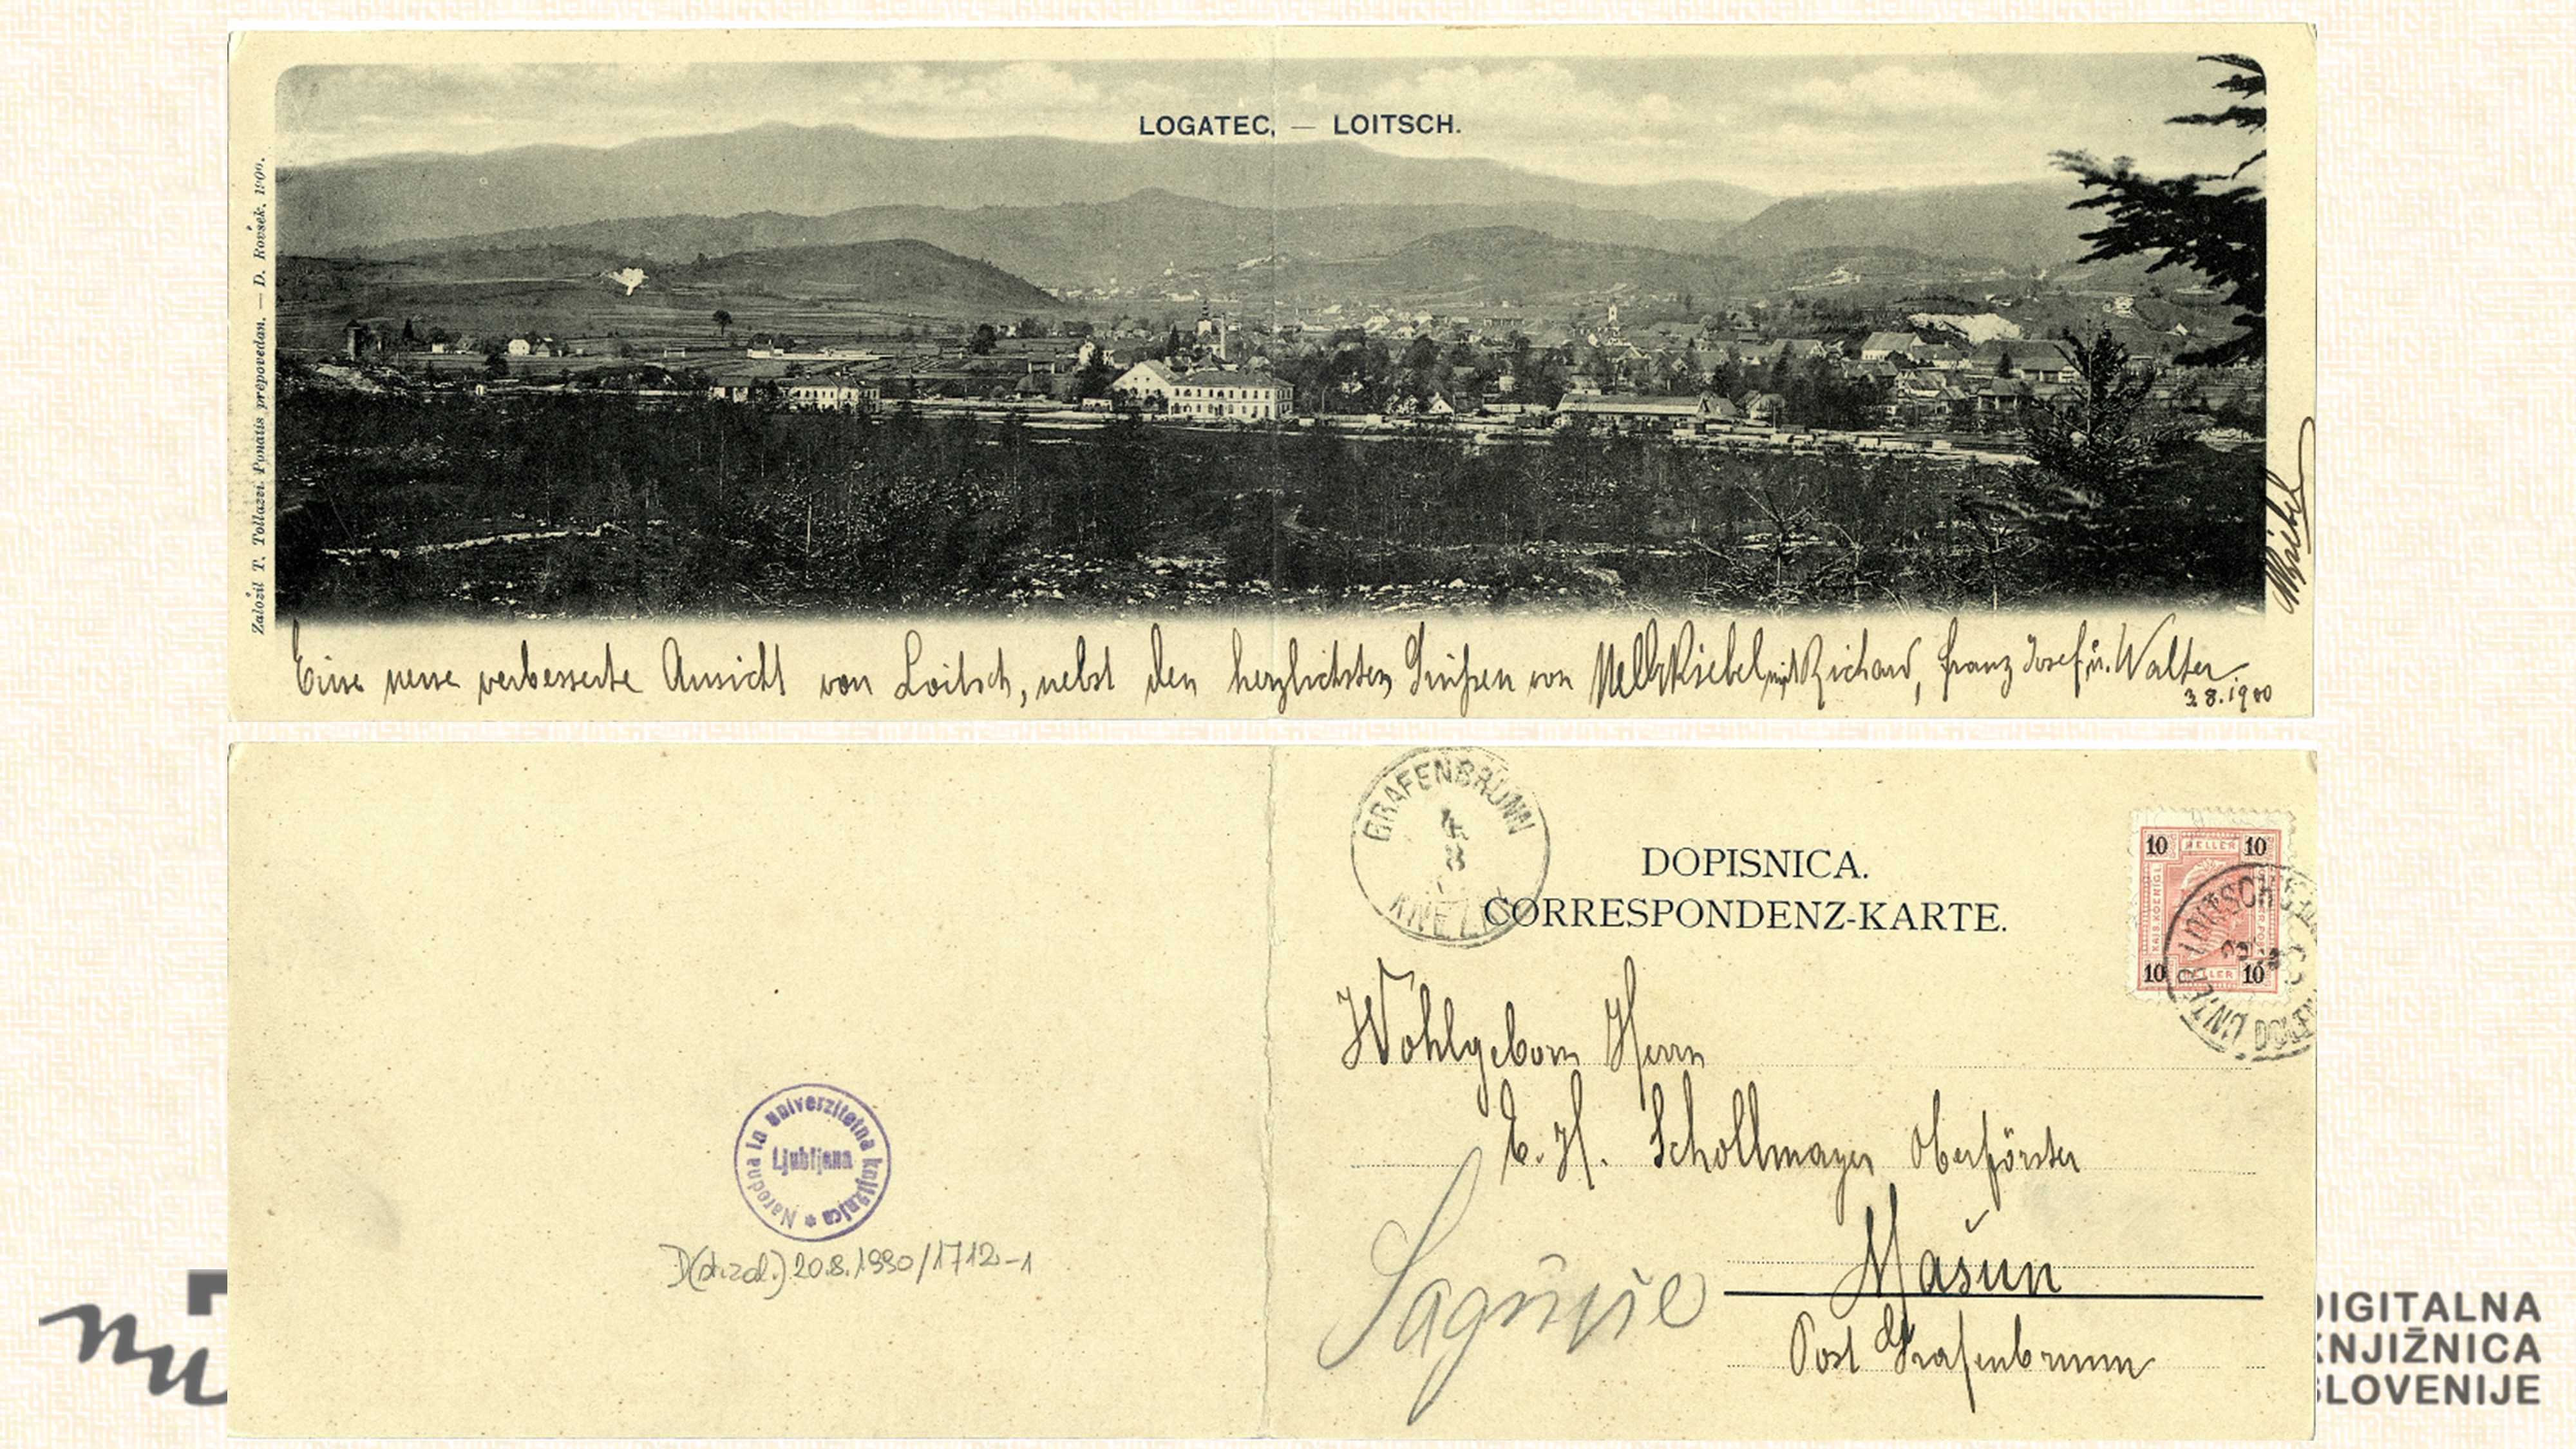 LOGATEC, — LOITSCH.
Založil T. Tollazzi. Ponatis prepovedan. — D. Rovšek, 1900.
Eine neue verbesserte Ansicht von Loitsch, nebst den herzlichsten Grüßen von Nelly Kiebel mit Richard, Franz Josef, u. Walter
3.8.1900
GRAFENBRUNN
4
8
DOPISNICA.
CORRESPONDENZ-KARTE.
10 HELLER 10
10 10
UNTER LOITSCH
Wohlgeborn Herrn
E. H. Schollmayer Oberförster
Mašun
Post Grafenbrunn
Sagurje
Narodna in univerzitetna knjižnica *
Ljubljana
D(d.zal.) 20.8.1990/1712-1
DIGITALNA
KNJIŽNICA
SLOVENIJE